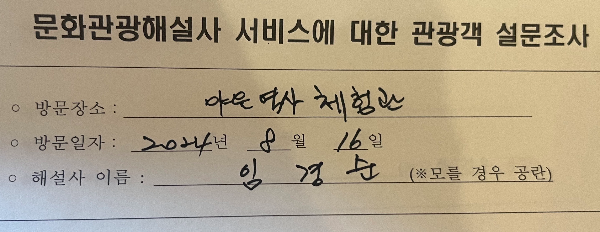 문화관광해설사 서비스에 대한 관광객 설문조사
○ 방문장소 : 야은역사 체험관
○ 방문일자 : 2024년 8월 16일
○ 해설사 이름 : 임경순 (※모를 경우 공란)